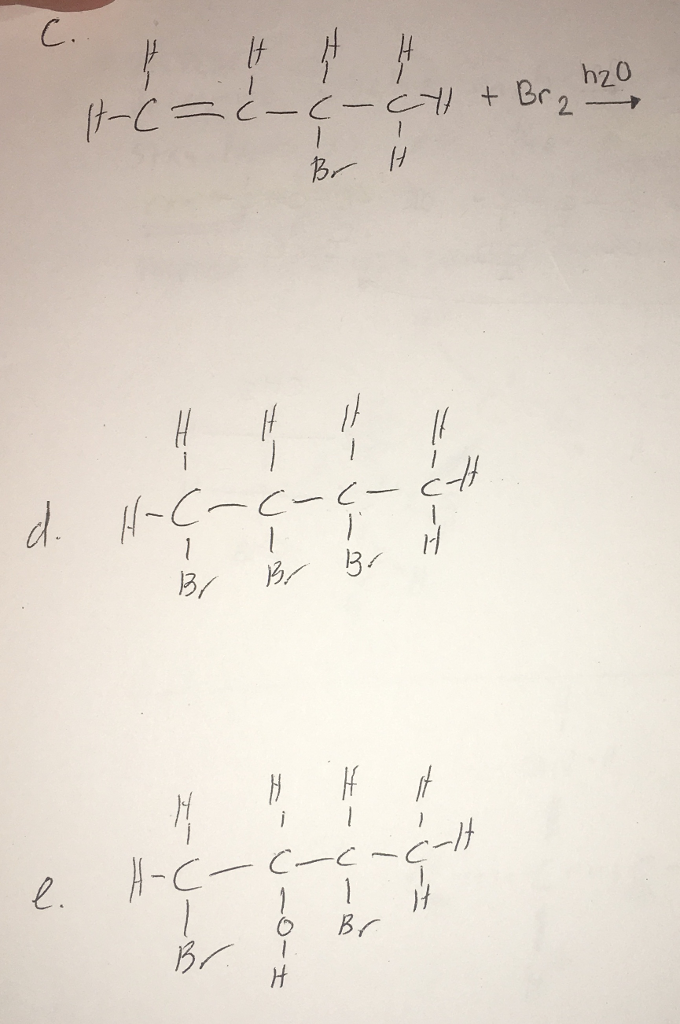 C.
H H H H
H-C=C-C-C-H + Br2 h2O →
Br H
H H H H
d. H-C-C-C-C-H
Br Br Br H
H H H H
e. H-C-C-C-C-H
Br O Br H
H